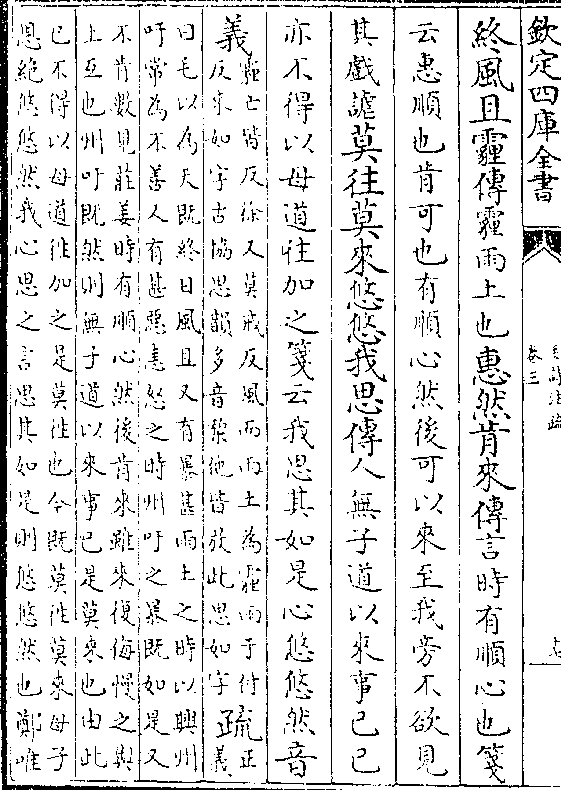 欽定四庫全書
毛詩注疏
卷三
終風且霾傳霾雨土也惠然肯來傳言時有順心也箋
云惠順也肯可也有順心然後可以來至我旁不欲見
其戲謔莫往莫來悠悠我思傳人無子道以來事己己
亦不得以母道往加之箋云我思其如是心悠悠然音
義霾亡皆反徐又莫戒反風而雨土為霾雨于付
反來如字古協思韻多音梨他皆放此思如字疏正義
曰毛以為天既終日風且又有暴甚雨土之時以興州
吁常為不善人有甚惡恚怒之時州吁之暴既如是又
不肯數見莊姜時有順心然後肯來雖來復侮慢之與
上互也州吁既然則無子道以來事己是莫來也由此
己不得以母道往加之是莫往也今既莫往莫來母子
恩絶悠悠然我心思之言思其如是則悠悠然也鄭唯